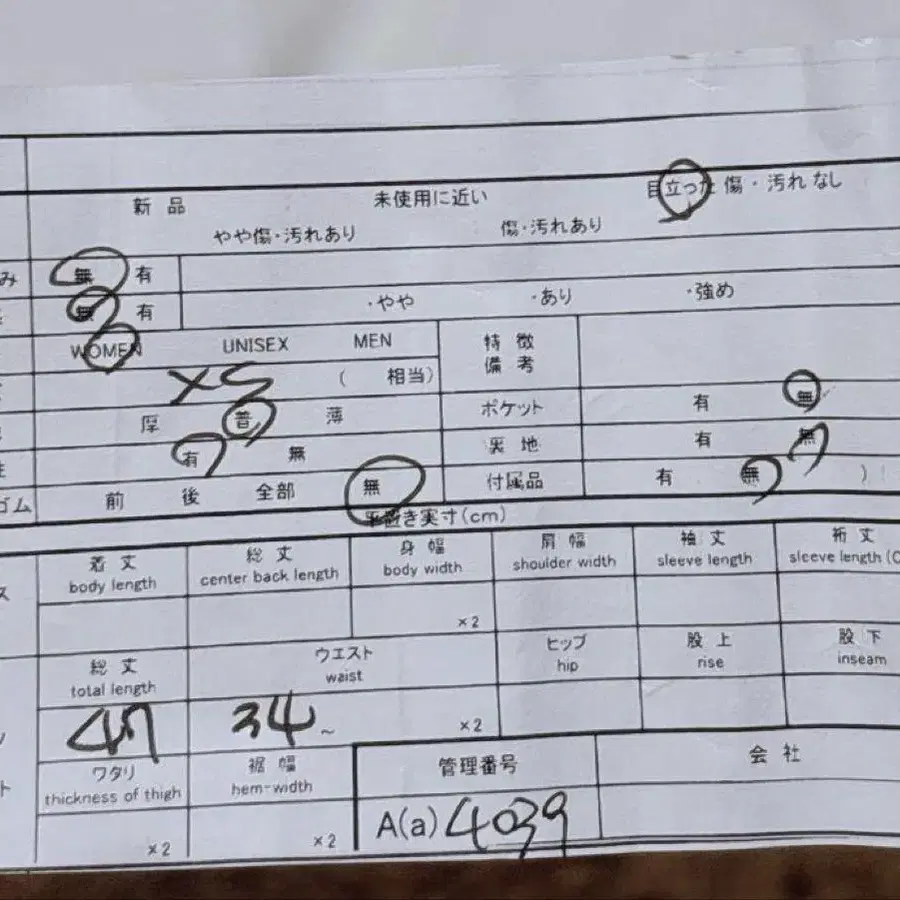 新品 未使用に近い 目立った傷・汚れなし
やや傷・汚れあり 傷・汚れあり
み 無 有
無 有 ・やや ・あり ・強め
WOMEN UNISEX MEN 特徴
備考
XS ( 相当)
厚 普 薄 ポケット 有 無
有 無 裏地 有 無
ゴム 前 後 全部 無 付属品 有 無 )
平置き実寸(cm)
着丈 総丈 身幅 肩幅 袖丈 裄丈
body length center back length body width shoulder width sleeve length sleeve length(C
×2
総丈 ウエスト ヒップ 股上 股下
total length waist hip rise inseam
47 34 ~ ×2
ワタリ 裾幅 管理番号 会社
thickness of thigh hem-width
×2 ×2 A(a) 4039